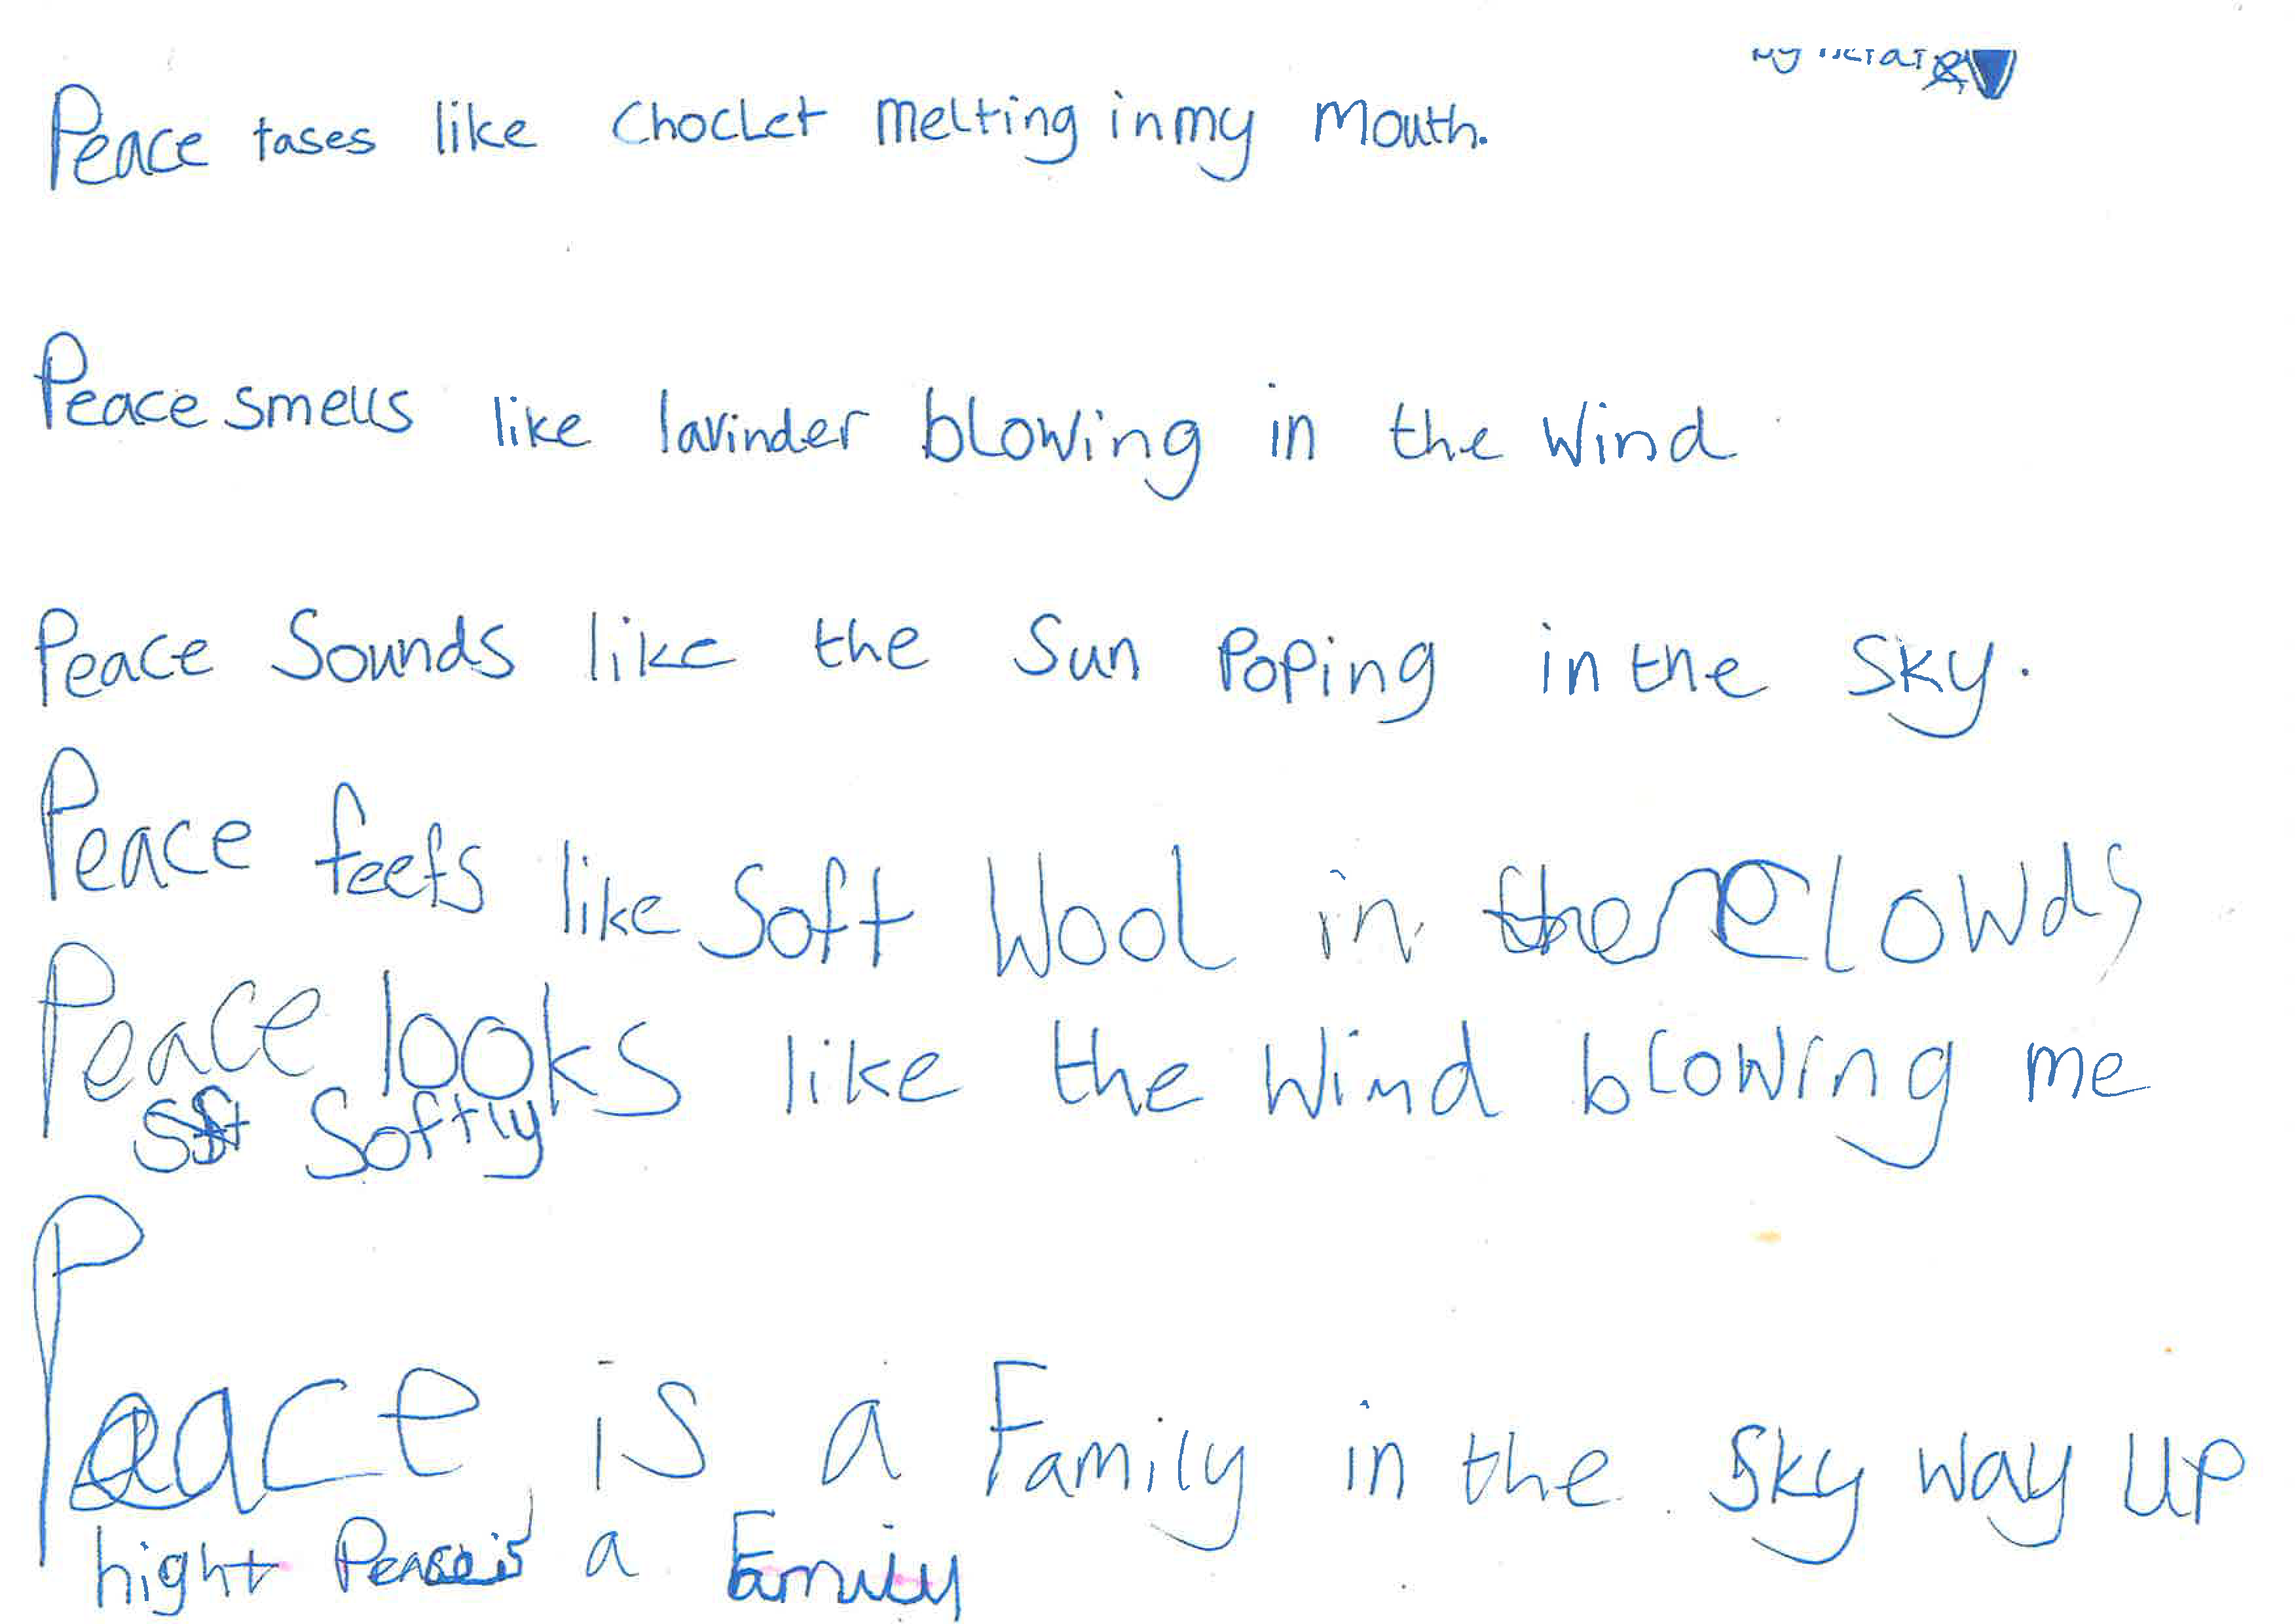 by
Peace tases like Choclet melting in my mouth.
Peace smells like lavinder blowing in the wind
Peace Sounds like the Sun Poping in the sky.
Peace feels like Soft Wool in the clowds
Peace looks like the Wind blowing me
Softly
Peace is a Family in the Sky way up
hight Peace is a Family